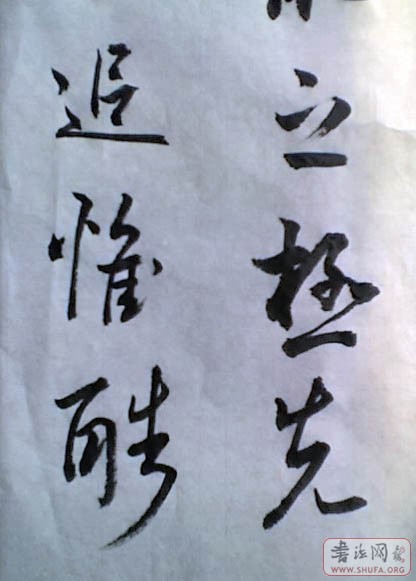 之極先
追惟酷
書法网
WWW.SHUFA.ORG